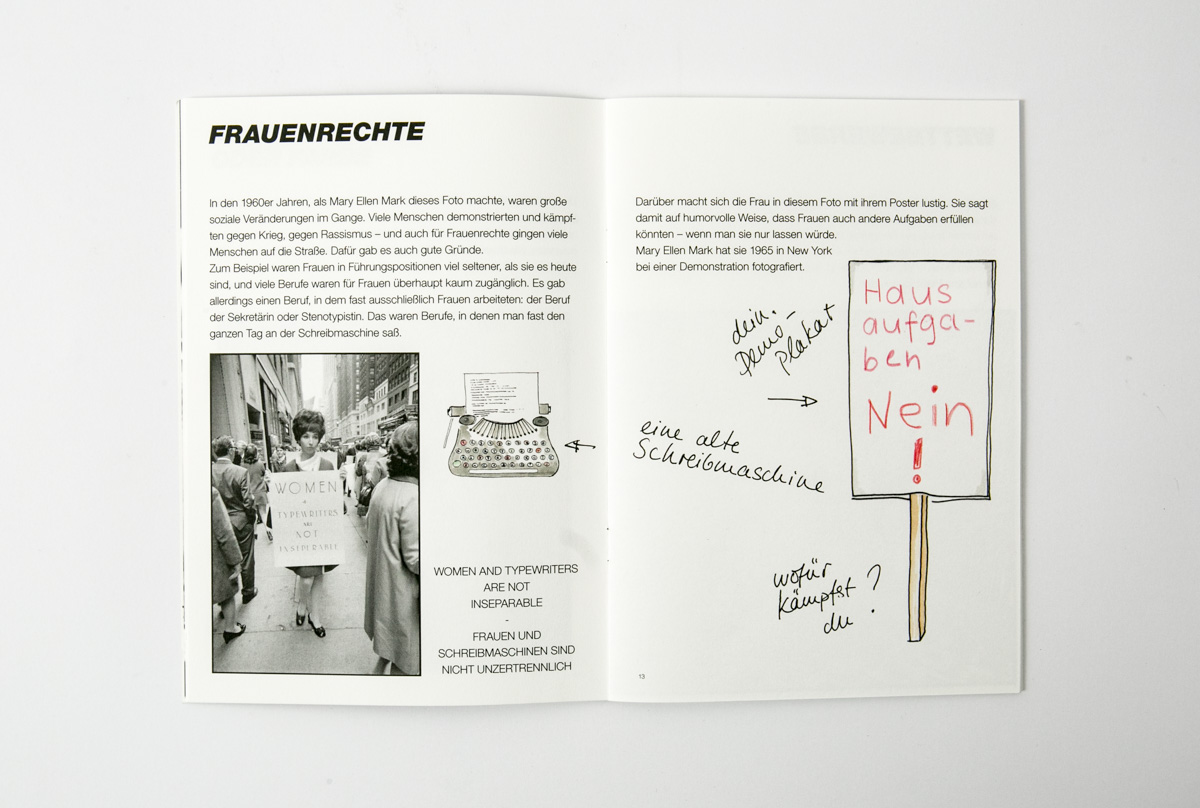 FRAUENRECHTE
In den 1960er Jahren, als Mary Ellen Mark dieses Foto machte, waren große
soziale Veränderungen im Gange. Viele Menschen demonstrierten und kämpf-
ten gegen Krieg, gegen Rassismus – und auch für Frauenrechte gingen viele
Menschen auf die Straße. Dafür gab es auch gute Gründe.
Zum Beispiel waren Frauen in Führungspositionen viel seltener, als sie es heute
sind, und viele Berufe waren für Frauen überhaupt kaum zugänglich. Es gab
allerdings einen Beruf, in dem fast ausschließlich Frauen arbeiteten: der Beruf
der Sekretärin oder Stenotypistin. Das waren Berufe, in denen man fast den
ganzen Tag an der Schreibmaschine saß.
WOMEN
&
TYPEWRITERS
ARE
NOT
INSEPERABLE
WOMEN AND TYPEWRITERS
ARE NOT
INSEPARABLE
-
FRAUEN UND
SCHREIBMASCHINEN SIND
NICHT UNZERTRENNLICH
Darüber macht sich die Frau in diesem Foto mit ihrem Poster lustig. Sie sagt
damit auf humorvolle Weise, dass Frauen auch andere Aufgaben erfüllen
könnten – wenn man sie nur lassen würde.
Mary Ellen Mark hat sie 1965 in New York
bei einer Demonstration fotografiert.
dein
Demo-
plakat
Haus
aufga-
ben
Nein
!
eine alte
Schreibmaschine
wofür
kämpfst
du ?
13